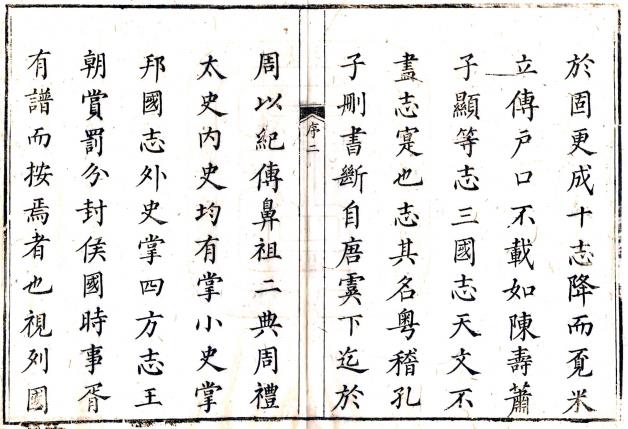 於固更成十志降而覔米
立傳户口不載如陳壽蕭
子顯等志三國志天文不
盡志寔也志其名粤稽孔
子刪書斷自唐虞下迄於
序二
周以紀傳鼻祖二典周禮
太史内史均有掌小史掌
邦國志外史掌四方志王
朝賞罰分封侯國時事胥
有譜而按焉者也視列國